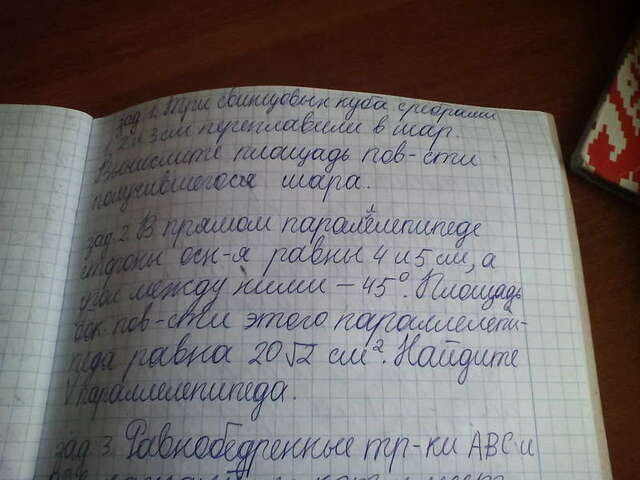 зад 1. Три свинцовых куба с ребрами
1, 2 и 3 см переплавили в шар.
Вычислите площадь пов-сти
получившегося шара.
зад 2. В прямом параллелепипеде
стороны осн-я равны 4 и 5 см, а
угол между ними - 45°. Площадь
бок. пов-сти этого параллелепи-
педа равна 20√2 см². Найдите
V параллелепипеда.
зад 3. Равнобедренные тр-ки ABC и